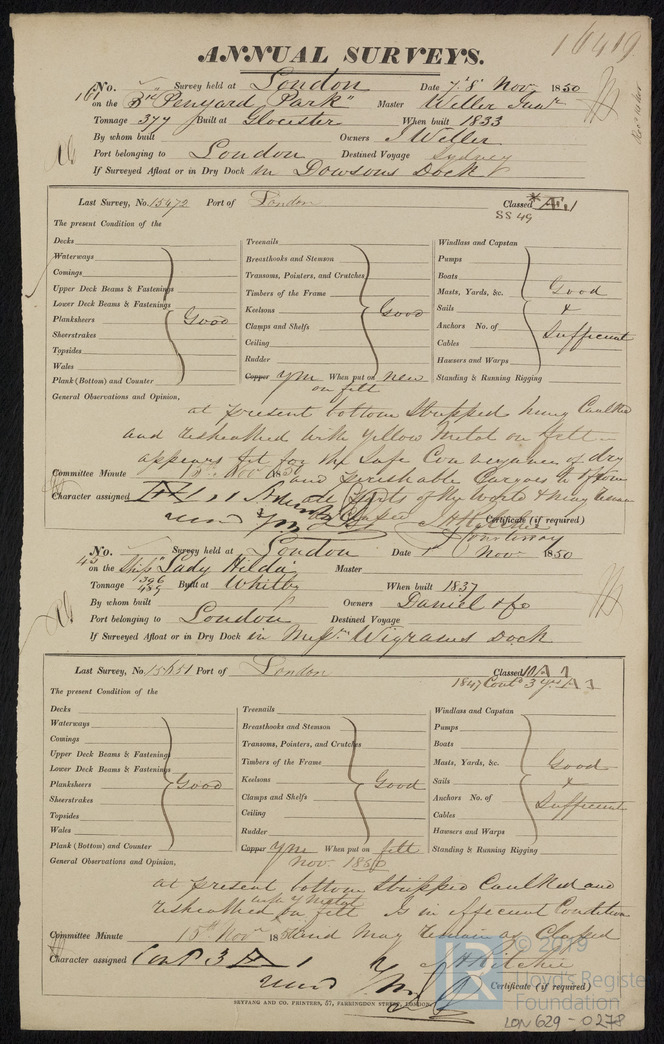 16419
ANNUAL SURVEYS.
No. 161 Survey held at London Date 7, 8 Nov 1850
on the "Penyard Park" Master Weller Junr
Tonnage 377 Built at Glocester When built 1833
By whom built Owners J Weller
Port belonging to London Destined Voyage Sydney
If Surveyed Afloat or in Dry Dock in Dowsons Dock
Last Survey, No. 15472 Port of London Classed * Æ 1
SS 49
The present Condition of the
Decks Treenails Windlass and Capstan
Waterways Breasthooks and Stemson Pumps
Comings Transoms, Pointers, and Crutches Boats
Upper Deck Beams & Fastenings Timbers of the Frame Masts, Yards, &c. Good
Lower Deck Beams & Fastenings Keelsons Sails &
Planksheers Good Clamps and Shelfs Good Anchors No. of Sufficient
Sheerstrakes Ceiling Cables
Topsides Rudder Hawsers and Warps
Wales Copper YM When put on New on felt Standing & Running Rigging
Plank (Bottom) and Counter
General Observations and Opinion,
at present bottom Stripped hung Caulked
and resheathed with Yellow Metal on felt
appears fit for the Safe Conveyance of dry
and perishable Cargoes to & from
Committee Minute 15th Nov 1850
all Parts of the World & may remain
Character assigned
as Classed
Certificate (if required)
Courtenay
No. 43 Survey held at London Date Nov 1850
on the Ship "Lady Hilda" Master
Tonnage 396 489 Built at Whitby When built 1837
By whom built Owners Daniel & Co
Port belonging to London Destined Voyage
If Surveyed Afloat or in Dry Dock in Messrs Wigrams Dock
Last Survey, No. 15651 Port of London Classed 10 A 1
1847 Contd 3 yrs A 1
The present Condition of the
Decks Treenails Windlass and Capstan
Waterways Breasthooks and Stemson Pumps
Comings Transoms, Pointers, and Crutches Boats
Upper Deck Beams & Fastenings Timbers of the Frame Masts, Yards, &c. Good
Lower Deck Beams & Fastenings Keelsons Sails &
Planksheers Good Clamps and Shelfs Good Anchors No. of Sufficient
Sheerstrakes Ceiling Cables
Topsides Rudder Hawsers and Warps
Wales Copper YM When put on felt Nov. 1850 Standing & Running Rigging
Plank (Bottom) and Counter
General Observations and Opinion,
at present bottom Stripped Caulked and
resheathed with Y Metal on felt Is in efficient Condition
Committee Minute 15th Nov 1850 and may remain as Classed
Character assigned Contd 3 A J H Ritchie
Certificate (if required)
SEYFANG AND CO. PRINTERS, 57, FARRINGDON STREET, LONDON.
© 2019
Lloyd's Register
Foundation
LON 629-0278